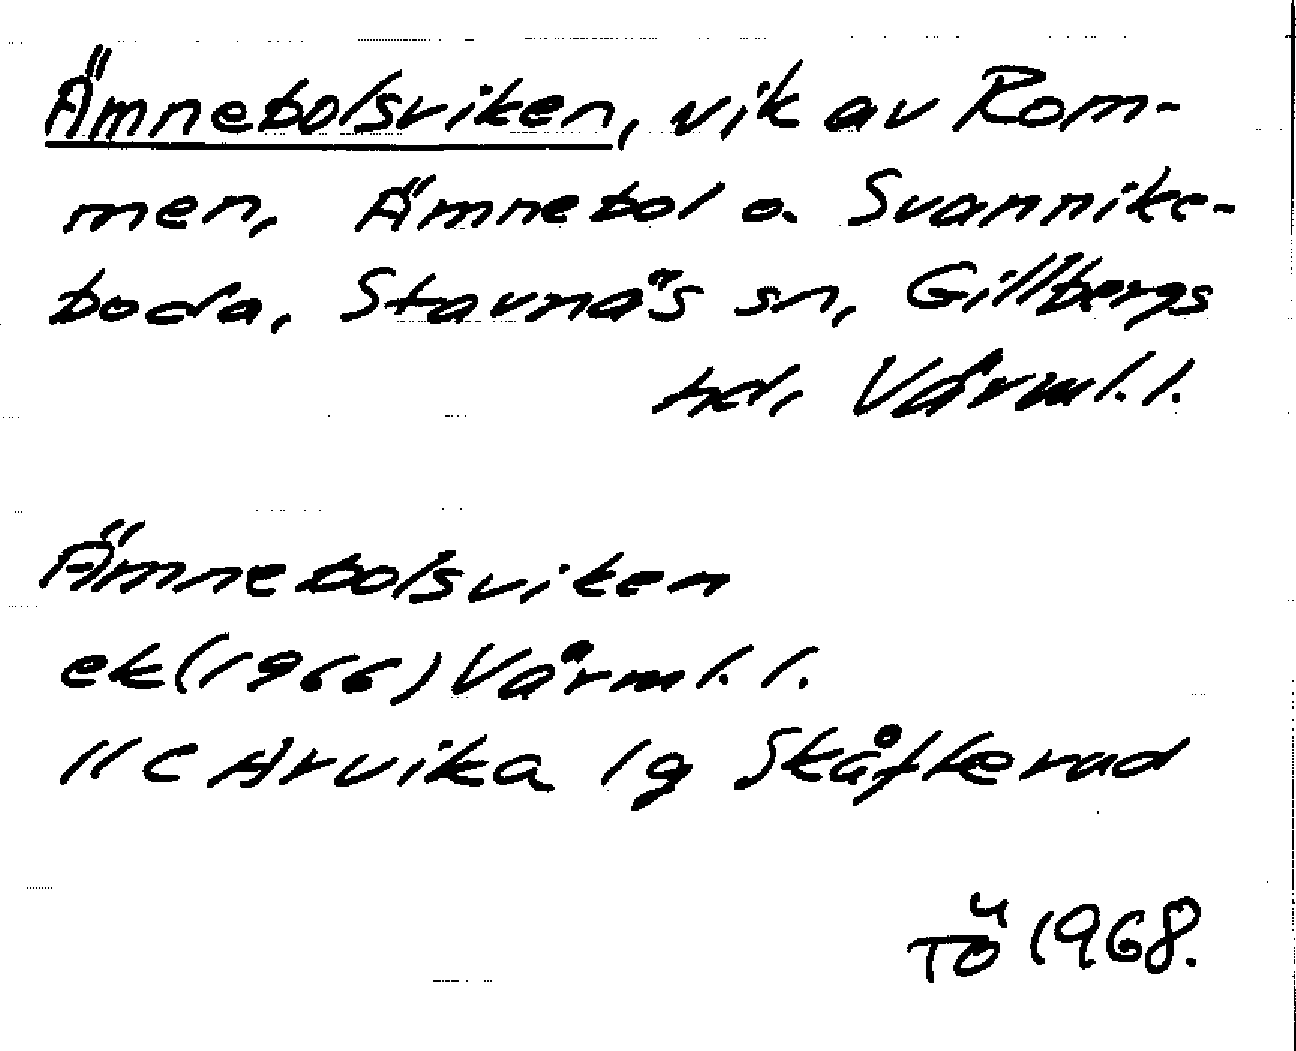 Ämnebolsviken, vik av Rom-
men, Ämnebol o. Svannike-
boda, Stavnäs sn, Gillbergs
hd, Värml. l.
Ämnebolsviken
ek (1966) Värml. l.
11C Arvika 1g Skåfkerud
TÖ 1968.